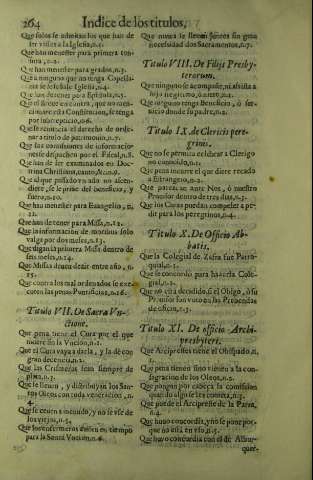 264 Indice de los titulos,
Que solos se admitan los que han de
ser utiles a la Iglesia, n.1.
Que han menester para primera tonsura, n.2.
Que han menester para grados, n.3.
Que a ninguno que no tenga
Que han de tener para Epistola, n.5.
Que se renuncia el derecho de ordenar a titulo de patrimonio, n.7.
Que las comissiones de informaciones se despachen por el Fiscal, n.8.
Que han de ser examinados en Doctrina Christiana,
Que al que passado vn año no ascendiere, se le prive del beneficio, y
fuero, n.10.
Que han menester para Evangelio, n.
Que han de tener para Missa, n.12.
Que la informacion de moribus solo
valga por dos meses, n.13.
Que digan la primera Missa dentro de
seis meses, n.14.
Que Missas deuen dezir entre año, n.
25.
Que contra los mal ordenados se executen las penas Pontificias, n.16.
Titulo VII. De Sacra Unctione.
Que pena tiene el Cura por el que
muere sin la Vncion, n.1.
Que el Cura vaya a darla, y la dè con
gran decencia, n.2.
Que las Crismeras sean siempre de
plata, n.3.
Que se lleuen, y distribuyan los Santos Oleos con toda veneracion, n.
4.
Que se
los viejos, n.5.
Que los enfermeros auisen en tiempo
para la Santa Vncion, n.6.
Que nunca se lleuen juntos sin gran
necessidad dos Sacramentos, n.7.
Titulo VIII. De Filijs Presbyterorum.
Que ninguno se acompañe, ni assista a
hijo ilegitimo, ò nieto, n.1.
Que ninguno tenga Beneficio, ò seruicio donde su padre, n.2.
Titulo IX. de Clericis peregrinis.
Que no se permita celebrar a Clerigo
no conocido, n.1.
Que pena incurre el que diere recado
a Estrangero, n.2.
Que parezcan ante Nos, ò nuestro
Prouisor dentro de tres dias, n.3.
Que los Curas puedan compeler a pedir para los peregrinos, n.4.
Titulo X. De Officio Abbatis.
Que la Colegial de Zafra fue Parroquial, n.1.
Que se concordò para hazerla Colegial, n.2.
Que no està decidido, si el Obispo, ò su
Prouisor
de oficio, n.3.
Titulo XI. De officio Archipresbyteri.
Que Arciprestes tiene el Obispado, n.
1.
Que pena tienen sino vienen a la consagracion de los Oleos, n.2.
Que pongan por cabeça la comission
quando algo se les cometa, n.3.
Que puede el Arcipreste de la Parra,
n.4.
Que huuo concordia, y no se pone porque no està en vso, n.5.
Que huuo concordia con el de Alburquer-